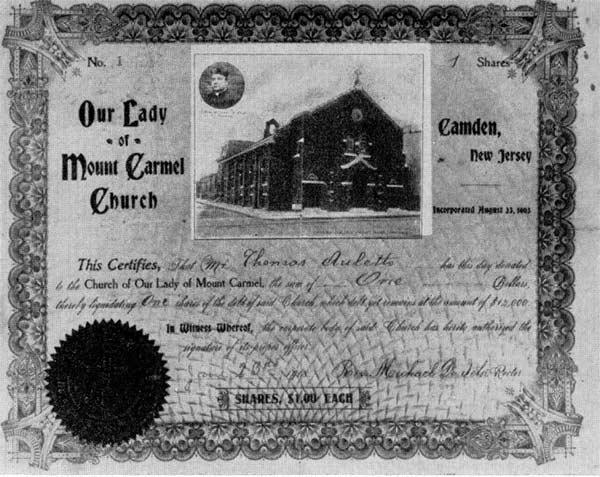 No. 1
1 Shares
Our Lady
of
Mount Carmel
Church
Camden,
New Jersey
Incorporated August 23, 1903
This Certifies, That Mr Thomas Auletto has this day donated
to the Church of Our Lady of Mount Carmel, the sum of One Dollars,
thereby liquidating One shares of the debt of said Church, which debt yet remains at the amount of $12,000.
In Witness Whereof, the corporate body of said Church has hereto authorized the
signature of its proper officer.
Rev. Michael Rector
SHARES, $1.00 EACH